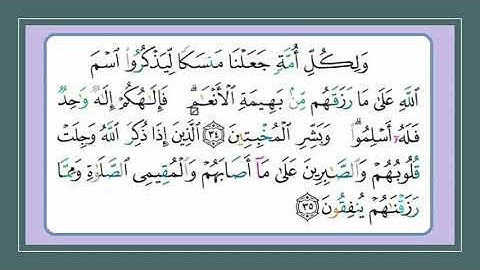 وَلِكُلِّ أُمَّةٍ جَعَلْنَا مَنسَكًا لِّيَذْكُرُوا۟ ٱسْمَ
ٱللَّهِ عَلَىٰ مَا رَزَقَهُم مِّنۢ بَهِيمَةِ ٱلْأَنْعَـٰمِ ۗ فَإِلَـٰهُكُمْ إِلَـٰهٌ وَٰحِدٌ
فَلَهُۥٓ أَسْلِمُوا۟ ۗ وَبَشِّرِ ٱلْمُخْبِتِينَ ٣٤ ٱلَّذِينَ إِذَا ذُكِرَ ٱللَّهُ وَجِلَتْ
قُلُوبُهُمْ وَٱلصَّـٰبِرِينَ عَلَىٰ مَآ أَصَابَهُمْ وَٱلْمُقِيمِى ٱلصَّلَوٰةِ وَمِمَّا
رَزَقْنَـٰهُمْ يُنفِقُونَ ٣٥